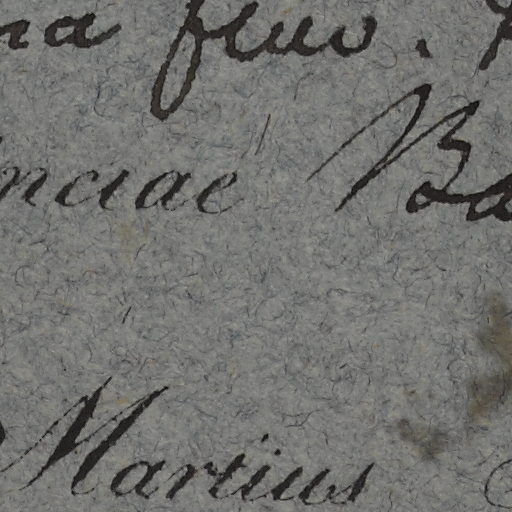 na fluv. 
inciae Ba
Martius